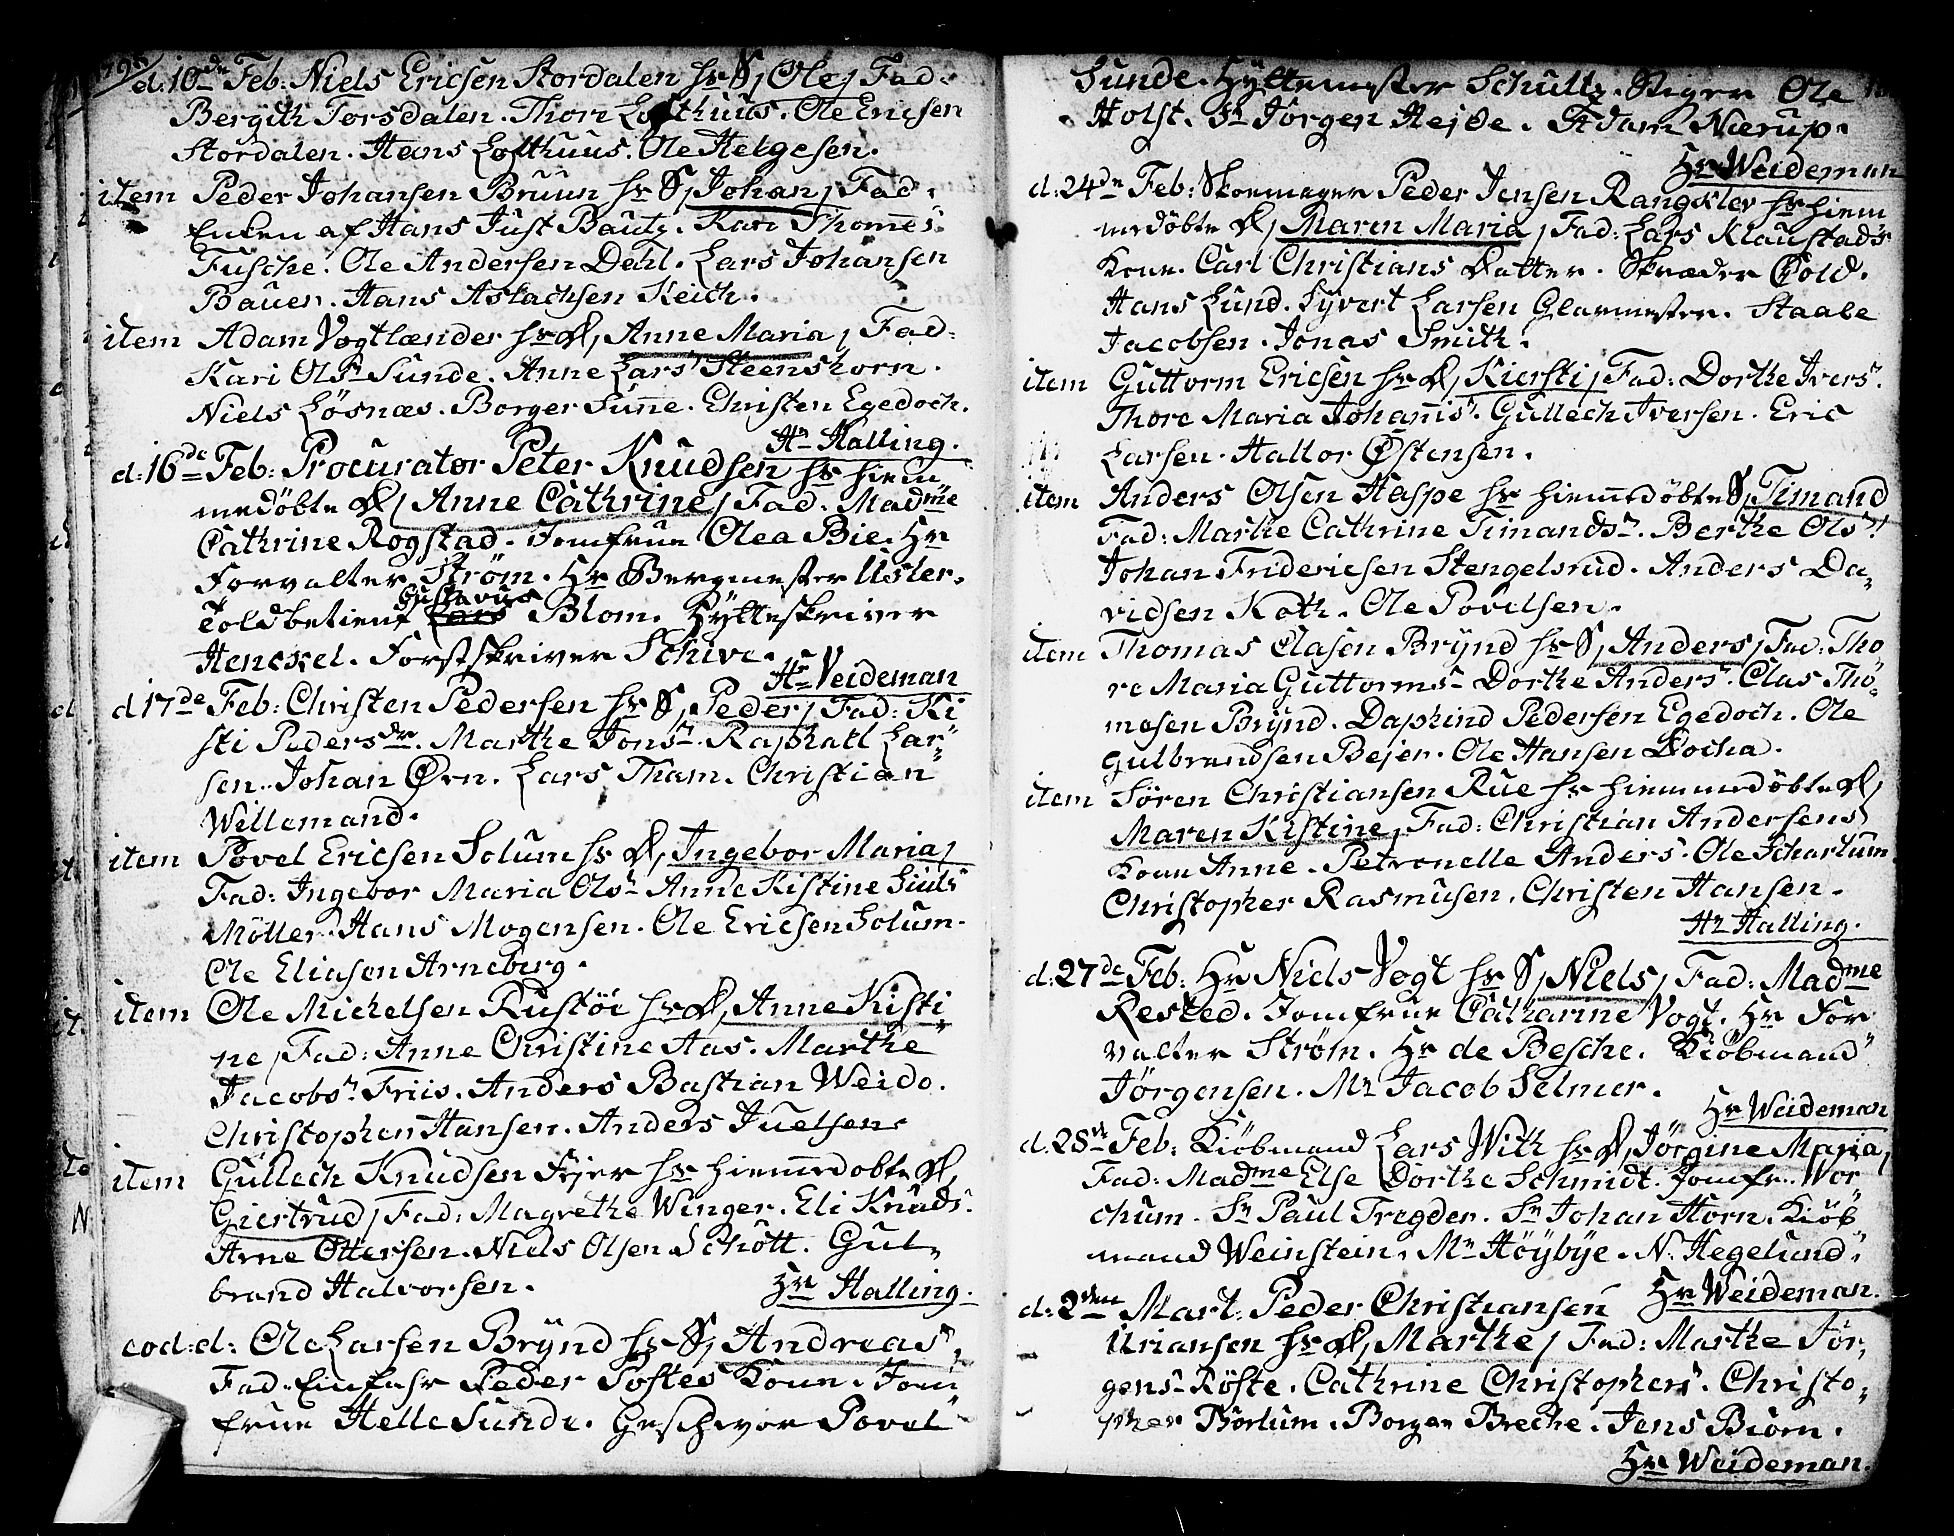 d: 10de Feb: Niels Ericsen Stordalen hs S, Ole, Fad:
Bergith Torsdalen. Thor Lofthuus. Ole Ericsen
Stordalen. Hans Lofthuus. Ole Helgesen.
item Peder Johansen Bruun hs S, Johan, Fad:
Enken af Hans Just Bautz. Kari Thomes:
Fusche. Ole Andersen Dahl. Lars Johansen
Bauer. Hans Aslachsen Keich.
item Adam Vogtlænder hs D, Anne Maria, Fad:
Kari Ols: Sunde. Anne Lars: Steenskorn.
Niels Løsnæs. Borger Sunne. Christen Egedoch.
Hr Halling.
d: 16de Feb: Procurator Peter Knudsen hs hiem
medøbte D, Anne Cathrine, Fad: Madme
Cathrine Rogstad. Jomfrue Olea Bie. Hr
Forvalter Strøm. Hr Bergmester Usler.
Gustavus
Toldbetient Lars Blom. Hytteskriver
Henckel. Forstskriver Schive.
Hr Veideman
d 17de Feb: Christen Pedersen hs S, Peder, Fad: Ki
sti Pedersdr. Marthe Jons: Raphael Lar
sen. Johan Ørn. Lars Tham. Christian
Willemand.
item Povel Ericsen Solum hs D, Ingebor Maria,
Fad: Ingebor Maria Ols: Anne Kistine Siuls
Møller. Hans Mogensen. Ole Ericsen Solum.
Ole Eliasen Arneberg.
item Ole Michelsen Rustøe hs D, Anne Kisti
ne, Fad: Anne Christine Aas. Marthe
Jacobs: Friis. Anders Bastian Weido.
Christopher Hansen. Anders Juelsen.
item Gullech Knudsen Fejer hs hiemmedøbte D,
Giertrud, Fad: Magrethe Winger. Eli Knuds:
Arne Ottersen. Niels Olsen Schøtt. Gul
brand Halvorsen. Hr Halling.
eod: d: Ole Larsen Brynd hs S, Andreas,
Fad: Einfahr Peder Postes Kone. Jom
frue Helle Sunde. Geschwor Povel
Sunde. Hyttemester Schultz. Stiger Ole
Holst. Sr Jørgen Hejde. Adam Nierup.
Hr Weideman
d: 24de Feb: Skoemager Peder Jensen Rangklev hs hiem
medøbte D, Maren Maria, Fad: Lars Klaustads
Kone. Carl Christians Datter. Skræder Gold.
Hans Lund. Syvert Larsen Glarmester. Staale
Jacobsen. Jonas Smith.
item Guttorm Ericsen hs D, Kiersti, Fad: Dorthe Ivers:
Thore Maria Johannis: Gullech Iversen. Eric
Larsen. Haltor Østensen.
item Anders Olsen Haspe hs hiemmedøbte S, Timand
Fad: Marthe Cathrine Timands: Berthe Ols:
Johan Fridericsen Stengelsrud. Anders Da
vidsen Koth. Ole Povelsen.
item Thomas Clasen Brynd hs S, Anders, Fad: Tho
re Maria Guttorms: Dorthe Anders: Clas Tho
mesen Brynd. Daphind Pedersen Egedoch. Ole
Gulbrandsen Bejer. Ole Hansen Docka.
item Søren Christiansen Rue hs hiemmedøbte D,
Maren Kistine, Fad: Christian Andersens
Kone Anne. Petronelle Anders: Ole Scharlum.
Christopher Rasmusen. Christen Hansen.
Hr Halling.
d: 27de Feb: Hr Niels Vogt hs S, Niels, Fad: Madme
Rested. Jomfrue Catharine Vogt. Hr For
valter Strøm. Hr de Besche. Kiøbmand
Jørgensen. Mr Jacob Selmer.
Hr Weideman
d: 28de Feb: Kiøbmand Lars With hs D, Jørgine Maria,
Fad: Madme Else Dorthe Schmidt. Jomfr. Wor
chum. Sr Paul Tregder. Sr Johan Horn. Kiøb
mand Weinstein. Mr Høybye. N. Hegelund.
Hr Weideman.
d: 2den Mart: Peder Christiansen
Uriansen hs D, Marthe, Fad: Marthe Jør
gens: Røste. Cathrine Christophers: Christo
pher Børlum. Borger Breche. Jens Biørn.
Hr Weideman.